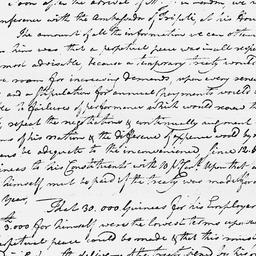 soon after the arrival of Mr. in London we
conference with the Ambassador of Tripoli at his House
The amount of all the information we can obtain
from him was that a perpetual peace was in all respects
most advisable, because a temporary treaty would
leave room for increasing demands upon every renewal
and a stipulation for annual payments would
liable to failures of performance which would renew the
repeat the negotiations & continually augment
claims of his nation & the difference of expence would by no
means be adequate to the inconvenience, since 12.
guineas to his Constituents with 10 pr Ct. upon that
himself must be paid if the treaty was made for
year,
That 30.000 Guineas for his Employers
3.000 for himself were the lowest terms upon
perpetual peace could be made & that this must
the delivery of the treaty signed by his